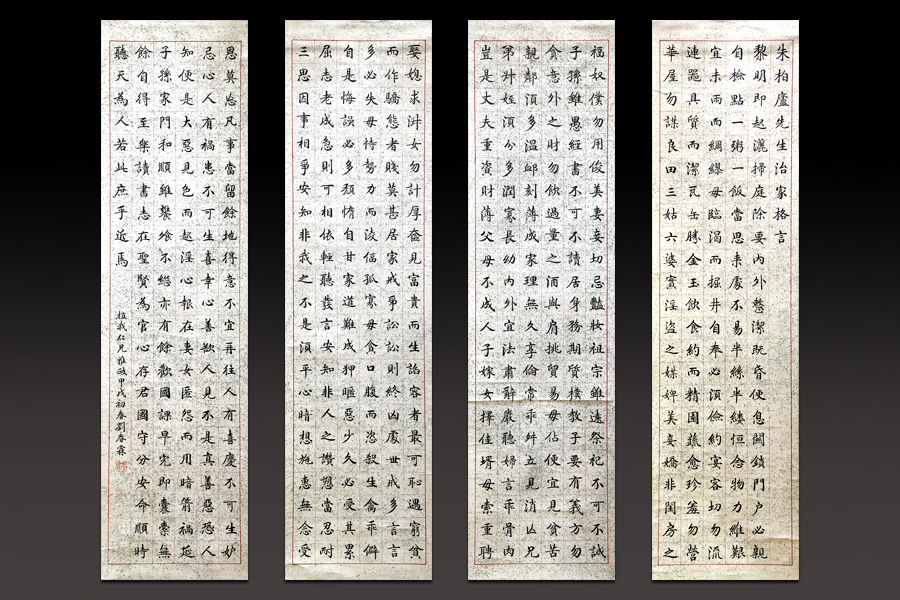 朱柏廬先生治家格言
黎明即起灑掃庭除要內外整潔既昏便息關鎖門戶必親
自檢點一粥一飯當思來處不易半絲半縷恒念物力維艱
宜未雨而綢繆毋臨渴而掘井自奉必須儉約宴客切勿流
連器具質而潔瓦缶勝金玉飲食約而精園蔬愈珍羞勿營
華屋勿謀良田三姑六婆實淫盜之媒婢美妾嬌非閨房之
福奴僕勿用俊美妻妾切忌豔妝祖宗雖遠祭祀不可不誠
子孫雖愚經書不可不讀居身務期質樸教子要有義方勿
貪意外之財勿飲過量之酒與肩挑貿易毋佔便宜見貧苦
親鄰須多溫卹刻薄成家理無久享倫常乖舛立見消亡兄
弟叔姪須分多潤寡長幼內外宜法肅辭嚴聽婦言乖骨肉
豈是丈夫重資財薄父母不成人子嫁女擇佳壻毋索重聘
娶媳求淑女勿計厚奩見富貴而生諂容者最可恥遇窮貧
而作驕態者賤莫甚居家戒爭訟訟則終凶處世戒多言言
多必失毋恃勢力而凌偪孤寡毋貪口腹而恣殺生禽乖僻
自是悔誤必多頹惰自甘家道難成狎暱惡少久必受其累
屈志老成急則可相依輕聽發言安知非人之讒愬當忍耐
三思因事相爭安知非我之不是須平心暗想施惠無念受
恩莫忘凡事當留餘地得意不宜再往人有喜慶不可生妒
忌心人有禍患不可生喜幸心善欲人見不是真善惡恐人
知便是大惡見色而起淫心報在妻女匿怨而用暗箭禍延
子孫家門和順雖饔飧不繼亦有餘歡國課早完即囊橐無
餘自得至樂讀書志在聖賢為官心存君國守分安命順時
聽天為人若此庶乎近焉
植我仁兄雅政甲戌初春劉春霖